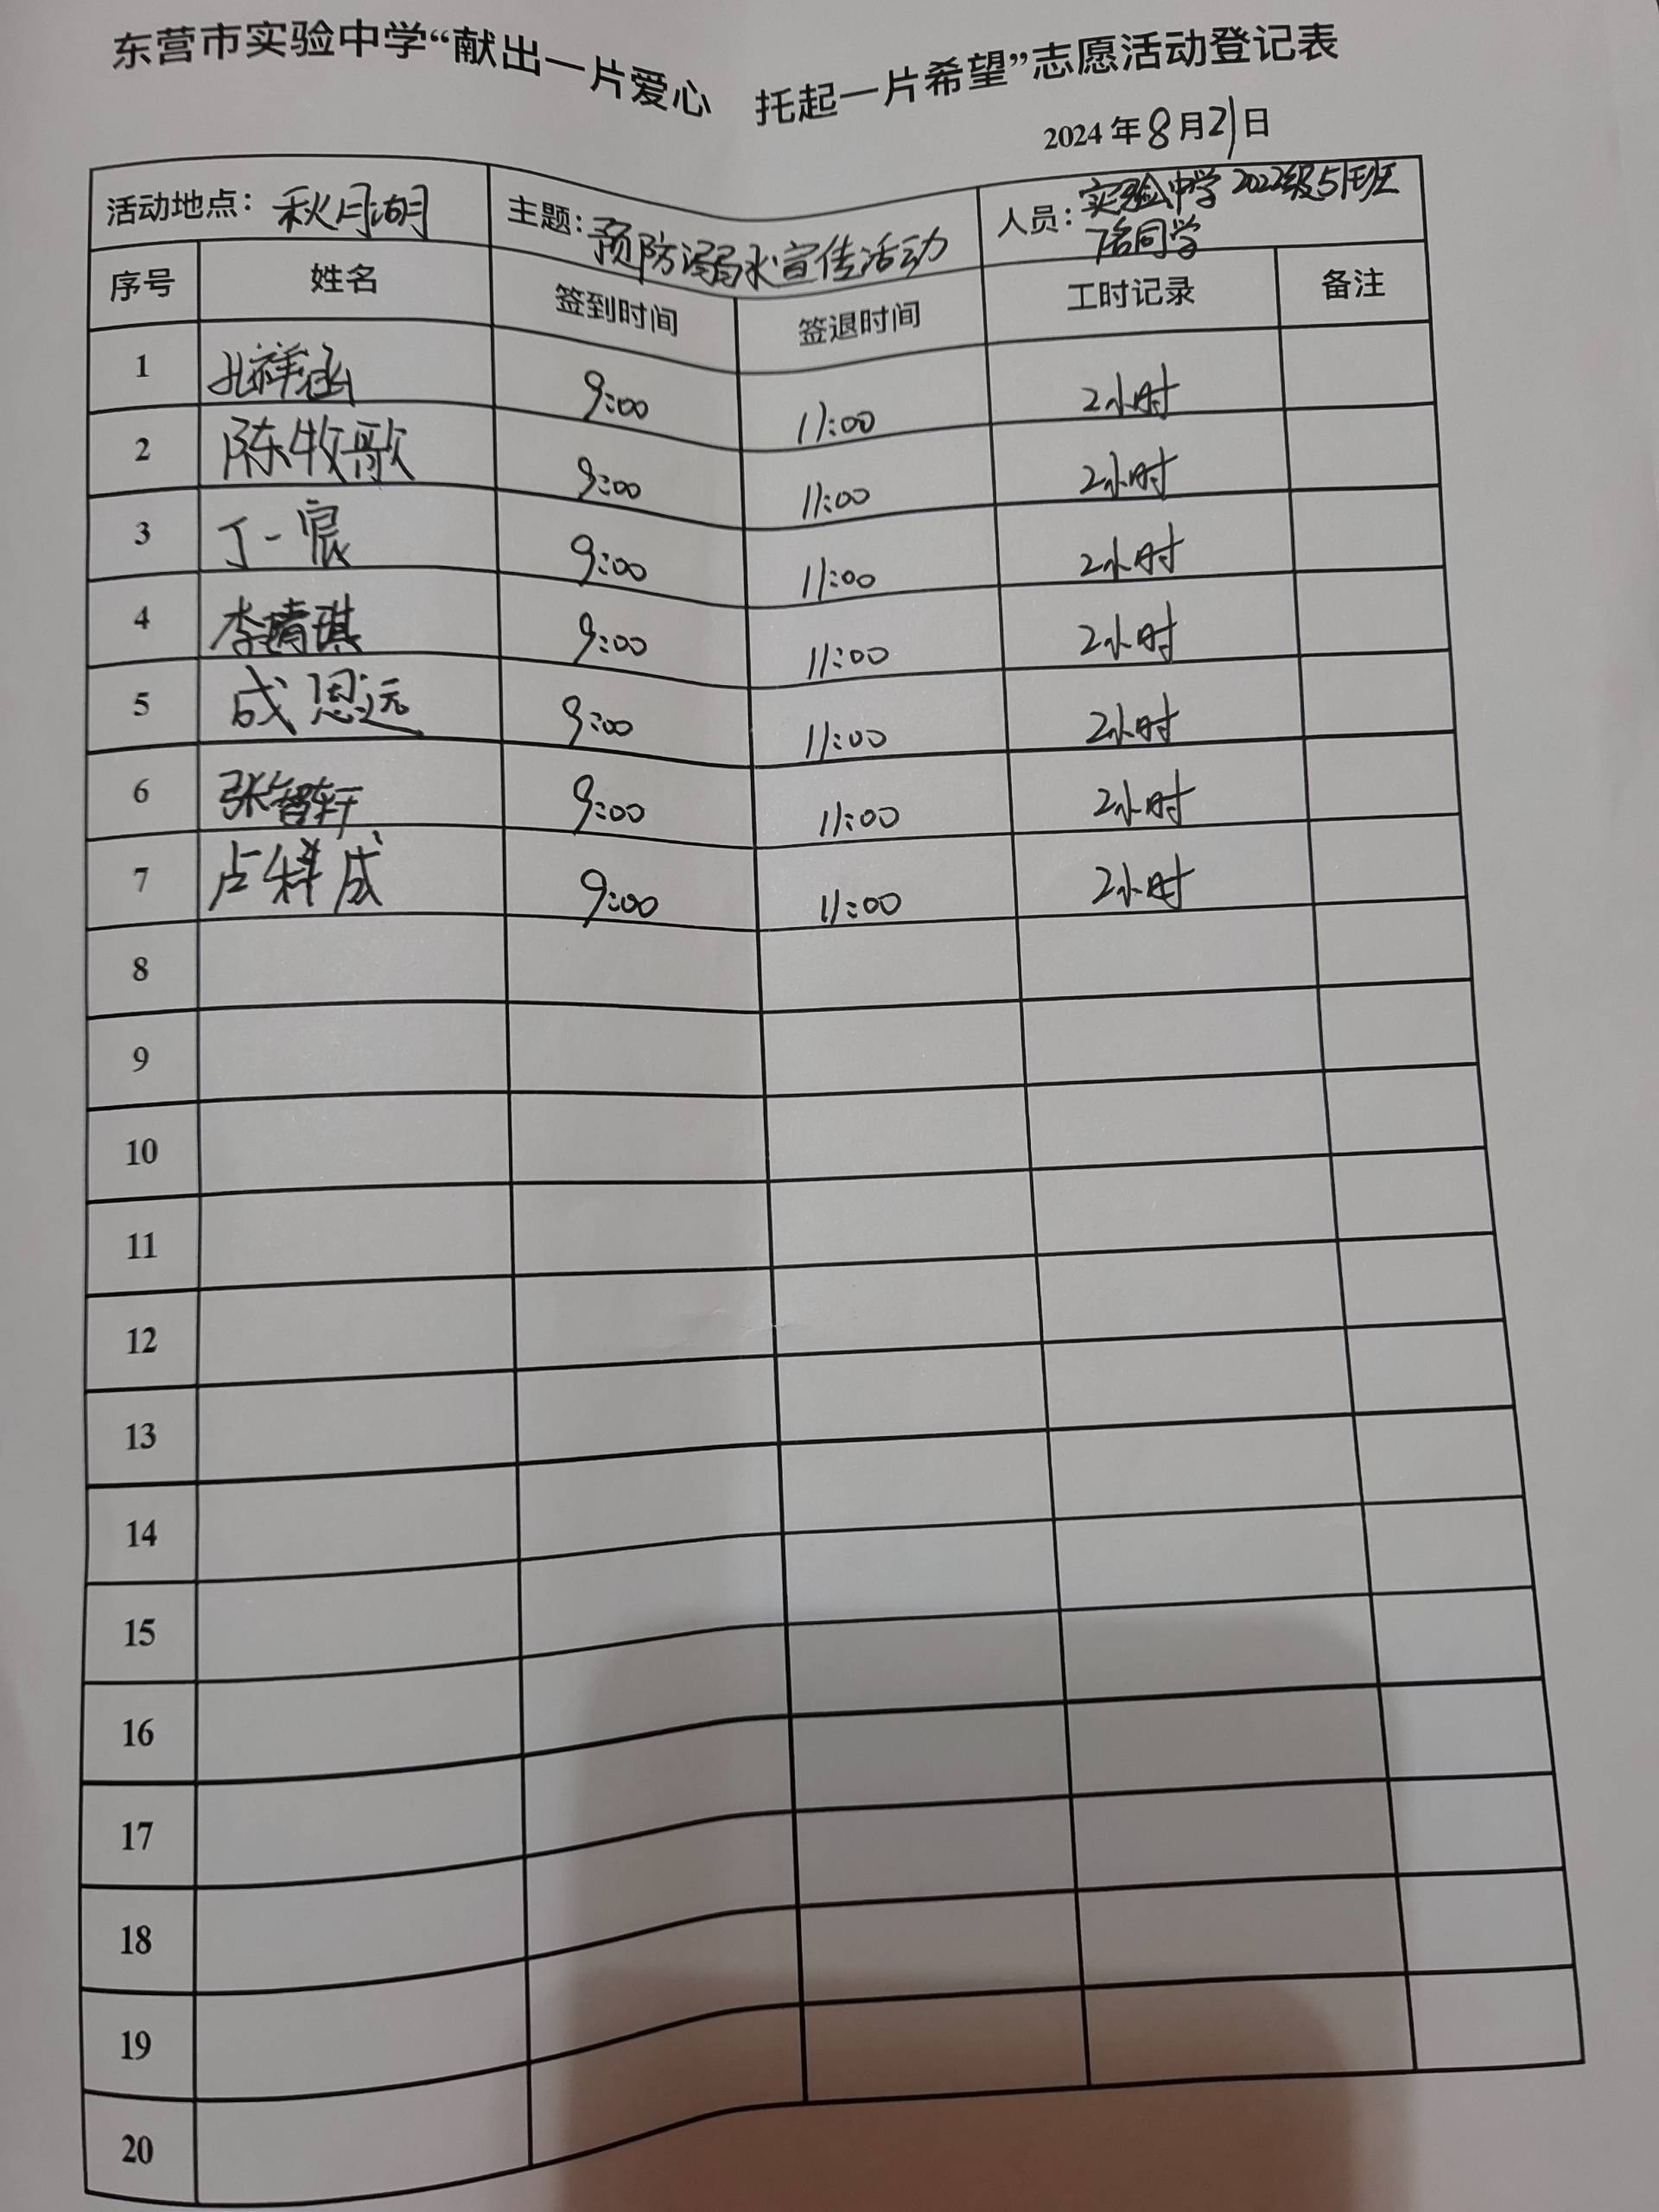 东营市实验中学“献出一片爱心 托起一片希望”志愿活动登记表
2024年8月21日
活动地点：秋月湖 主题：预防溺水宣传活动 人员：实验中学2022级51班
同学
序号 姓名 签到时间 签退时间 工时记录 备注
1 祥涵 9:00 11:00 2小时
2 陈牧歌 9:00 11:00 2小时
3 丁一宸 9:00 11:00 2小时
4 李靖琪 9:00 11:00 2小时
5 成恩远 9:00 11:00 2小时
6 张智轩 9:00 11:00 2小时
7 占祥成 9:00 11:00 2小时
8
9
10
11
12
13
14
15
16
17
18
19
20